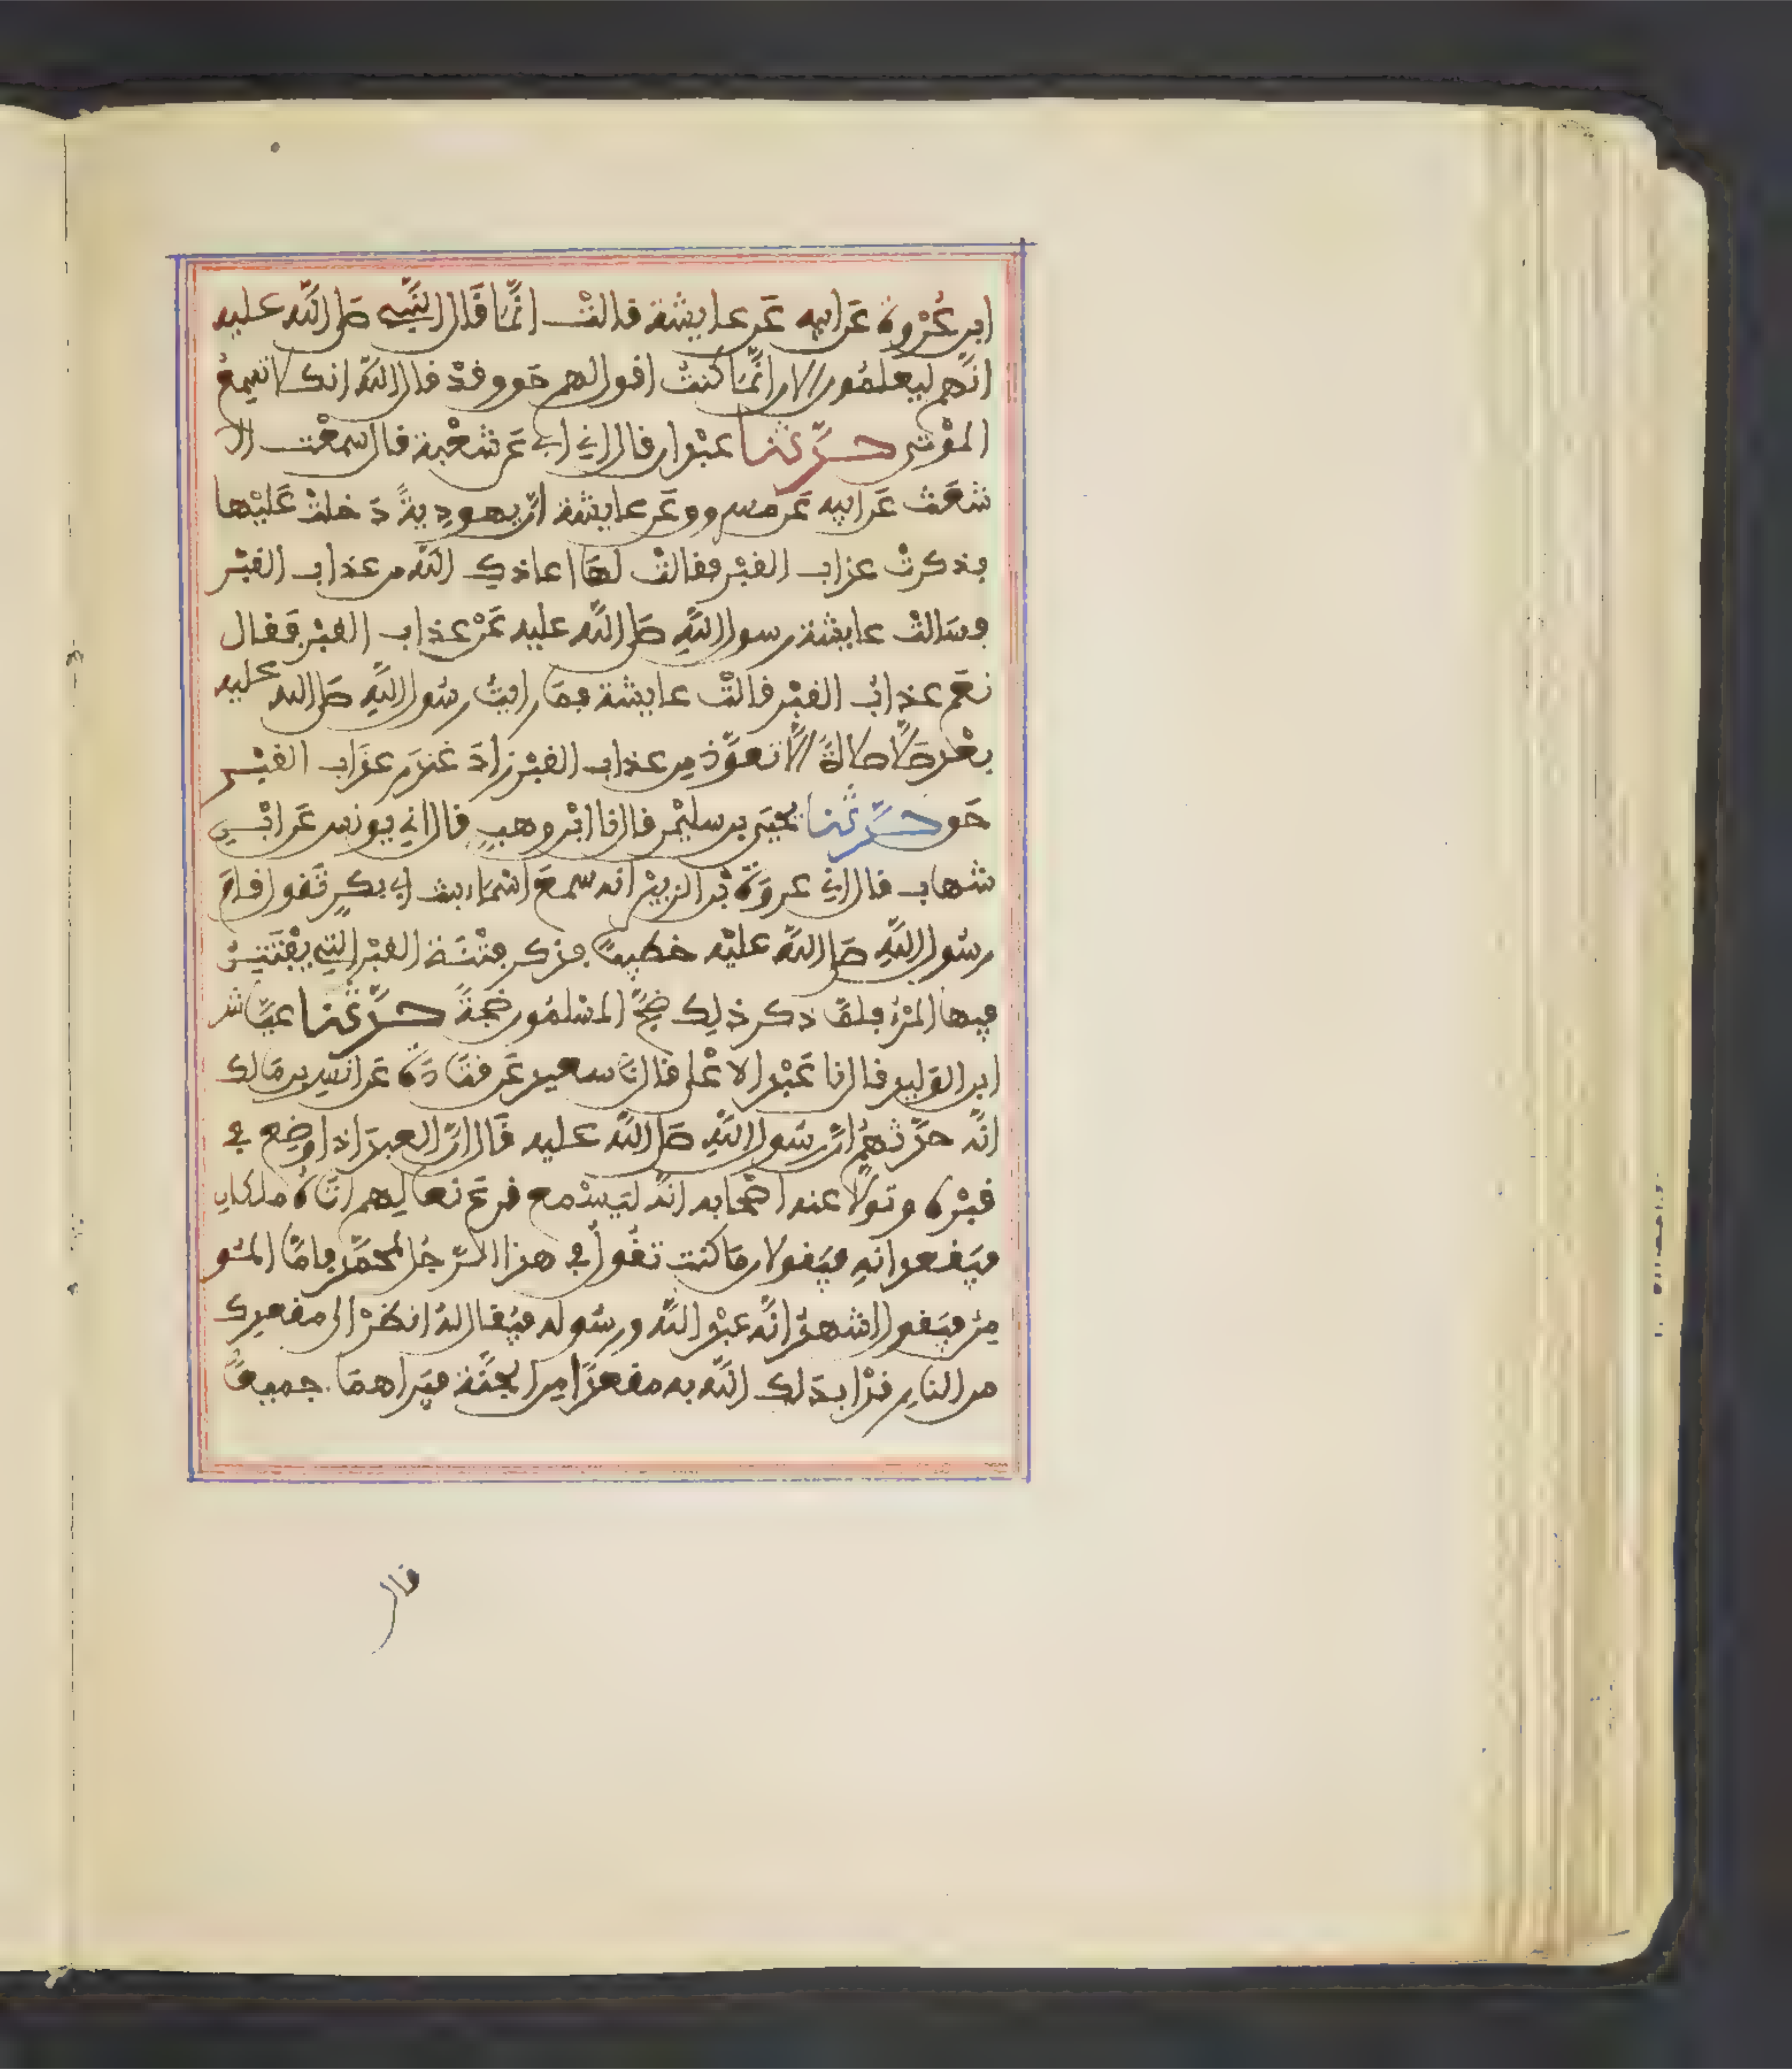 ابن عُرْوة عَن ابيه عَن عايشة قالتْ انَّما قَال النَّبِي صَلى اللَّه عليه
انَّهم ليعلمُون الان انَّما كنتُ اقول لهم حَق وقدْ قال اللَّه انك لا تسمعُ
الموْتى حدَّثنا عبْدان قال اني ابي عَن شعْبة قال سمعْت الا
شعَث عَن ابيه عَن مسروق عَن عايشة انَّ يهودِيةً دَخلتْ عَليْها
فذكرتْ عذاب القبْر فقالتْ لهَا اعاذكِ اللَّه من عذاب القبْر
فسَالتْ عايشة رسول اللَّهِ صَلى اللَّه عليه عَنْ عذاب القبْر فقال
نعَم عذابُ القبْر قالتْ عايشة فمَا رايتُ رسُول اللَّهِ صَلى الله عليه
بعْد صَلَّا صلاةً الَّا تعوَّذ مِن عذاب القبْر زادَ غندَر عذَاب القبْر
حَق حدَّثنا يحيَى بن سليْمن قال نا ابْن وهبٍ قال اني يونس عَن ابْنِ
شهاب قال اني عروَة بْن الزبيْر انه سمعَ اسْمَاء بنت ابي بكرٍ تَقول قامَ
رسُول اللَّهِ صَلى اللَّه عليْه خطيبًا فذكر فتْنَة القبْر التِي يفْتَتِنُ
فيها المرْء فلمَّا ذكر ذلِك ضجَّ المسْلمُون ضَجةً حدَّثنا عيَّاش
ابن الوَليد قال نا عَبْد الاعْلى قال نَا سعيد عَن قتَادَة عَن انس بن مَالك
انَّه حدَّثهُم انَّ رسَول اللَّهِ صَلى اللَّه عليه قَال انَّ العبدَ اذا وضِع في
قبْره وتولَّا عنه اصْحابه انهُ ليَسْمع قرعَ نعالِهم اتَاهُ ملكانِ
فيَقعدانهِ فيَقولان مَا كنت تقُول في هذا الرَّجُل لمحمَّد فامَّا المُو
مِنُ فيَقول اشهدُ انَّه عبْد اللَّه ورسُوله فيُقال لهُ انظرْ الى مقعدِك
من النارِ قدْ ابدَلك اللَّه به مقعدًا مِن الجنَّة فيَراهمَا جميعًا
قال